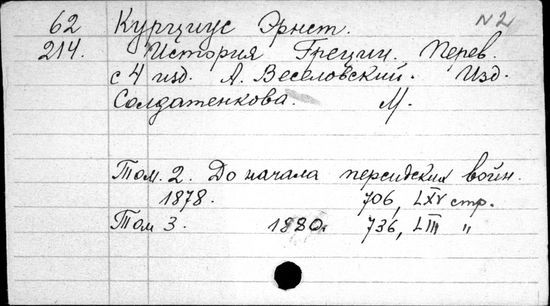 62 Курциус Эрнст. N 2
214. История Греции. Перев.
с 4 изд. А. Веселовский. Изд.
Солдатенкова. М.
Том. 2. До начала персидских войн.
1878. 706, LXV стр.
Том 3. 1880. 736, LIII "